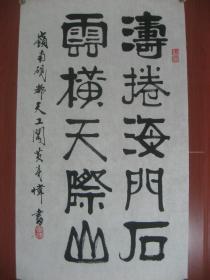 濤捲海門石
雲橫天際山
嶺南硯都天工閣黃
書